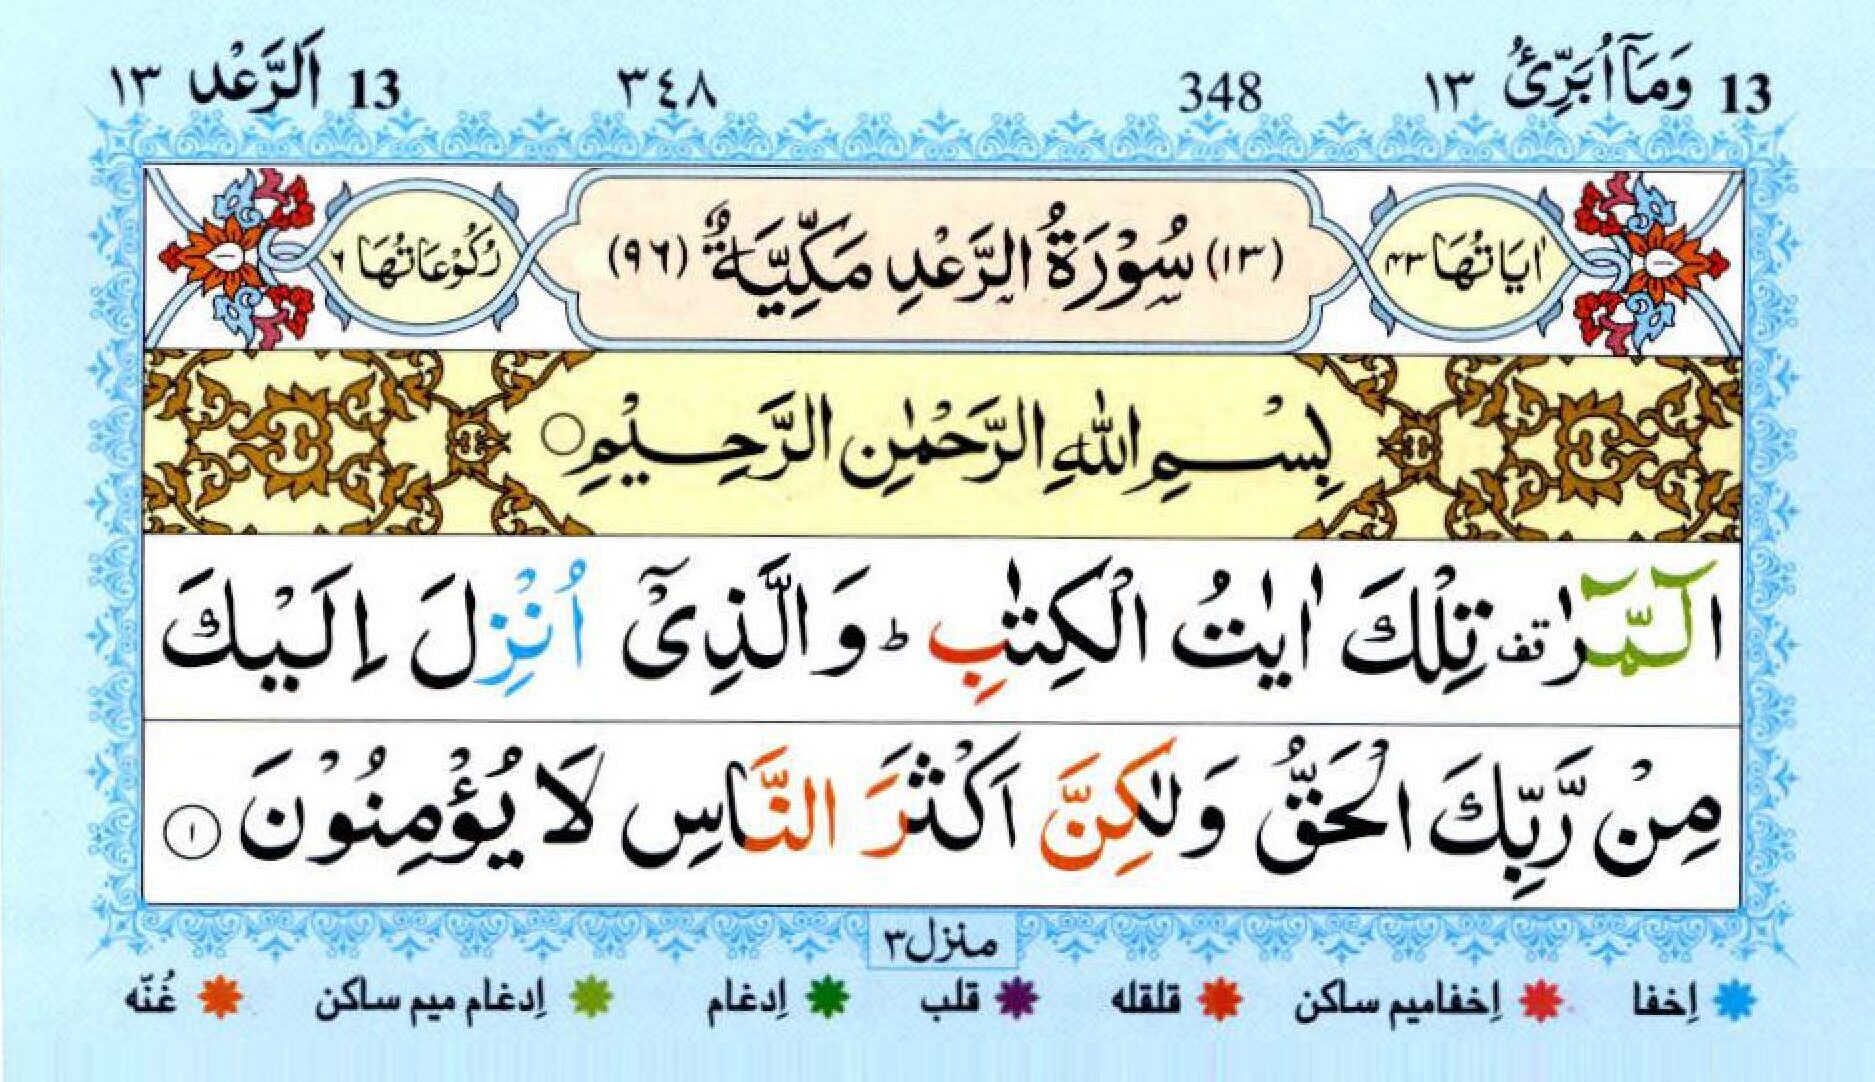 13 وَمَآ اُبَرِّئُ ١٣ 348 ٣٤٨ 13 اَلرَّعْد ١٣
اٰيَاتُهَا ٤٣ (١٣) سُوْرَةُ الرَّعْدِ مَكِّيَّةٌ (٩٦) رُكُوْعَاتُهَا ٦
بِسْمِ اللّٰهِ الرَّحْمٰنِ الرَّحِيْمِ
الٓمّٓرٰ قف تِلْكَ اٰيٰتُ الْكِتٰبِ ؕ وَالَّذِىْٓ اُنْزِلَ اِلَيْكَ
مِنْ رَّبِّكَ الْحَقُّ وَلٰكِنَّ اَكْثَرَ النَّاسِ لَا يُؤْمِنُوْنَ ١
منزل ٣
اِخفا اِخفا ميم ساكن قلقله قلب اِدغام اِدغام ميم ساكن غُنّه